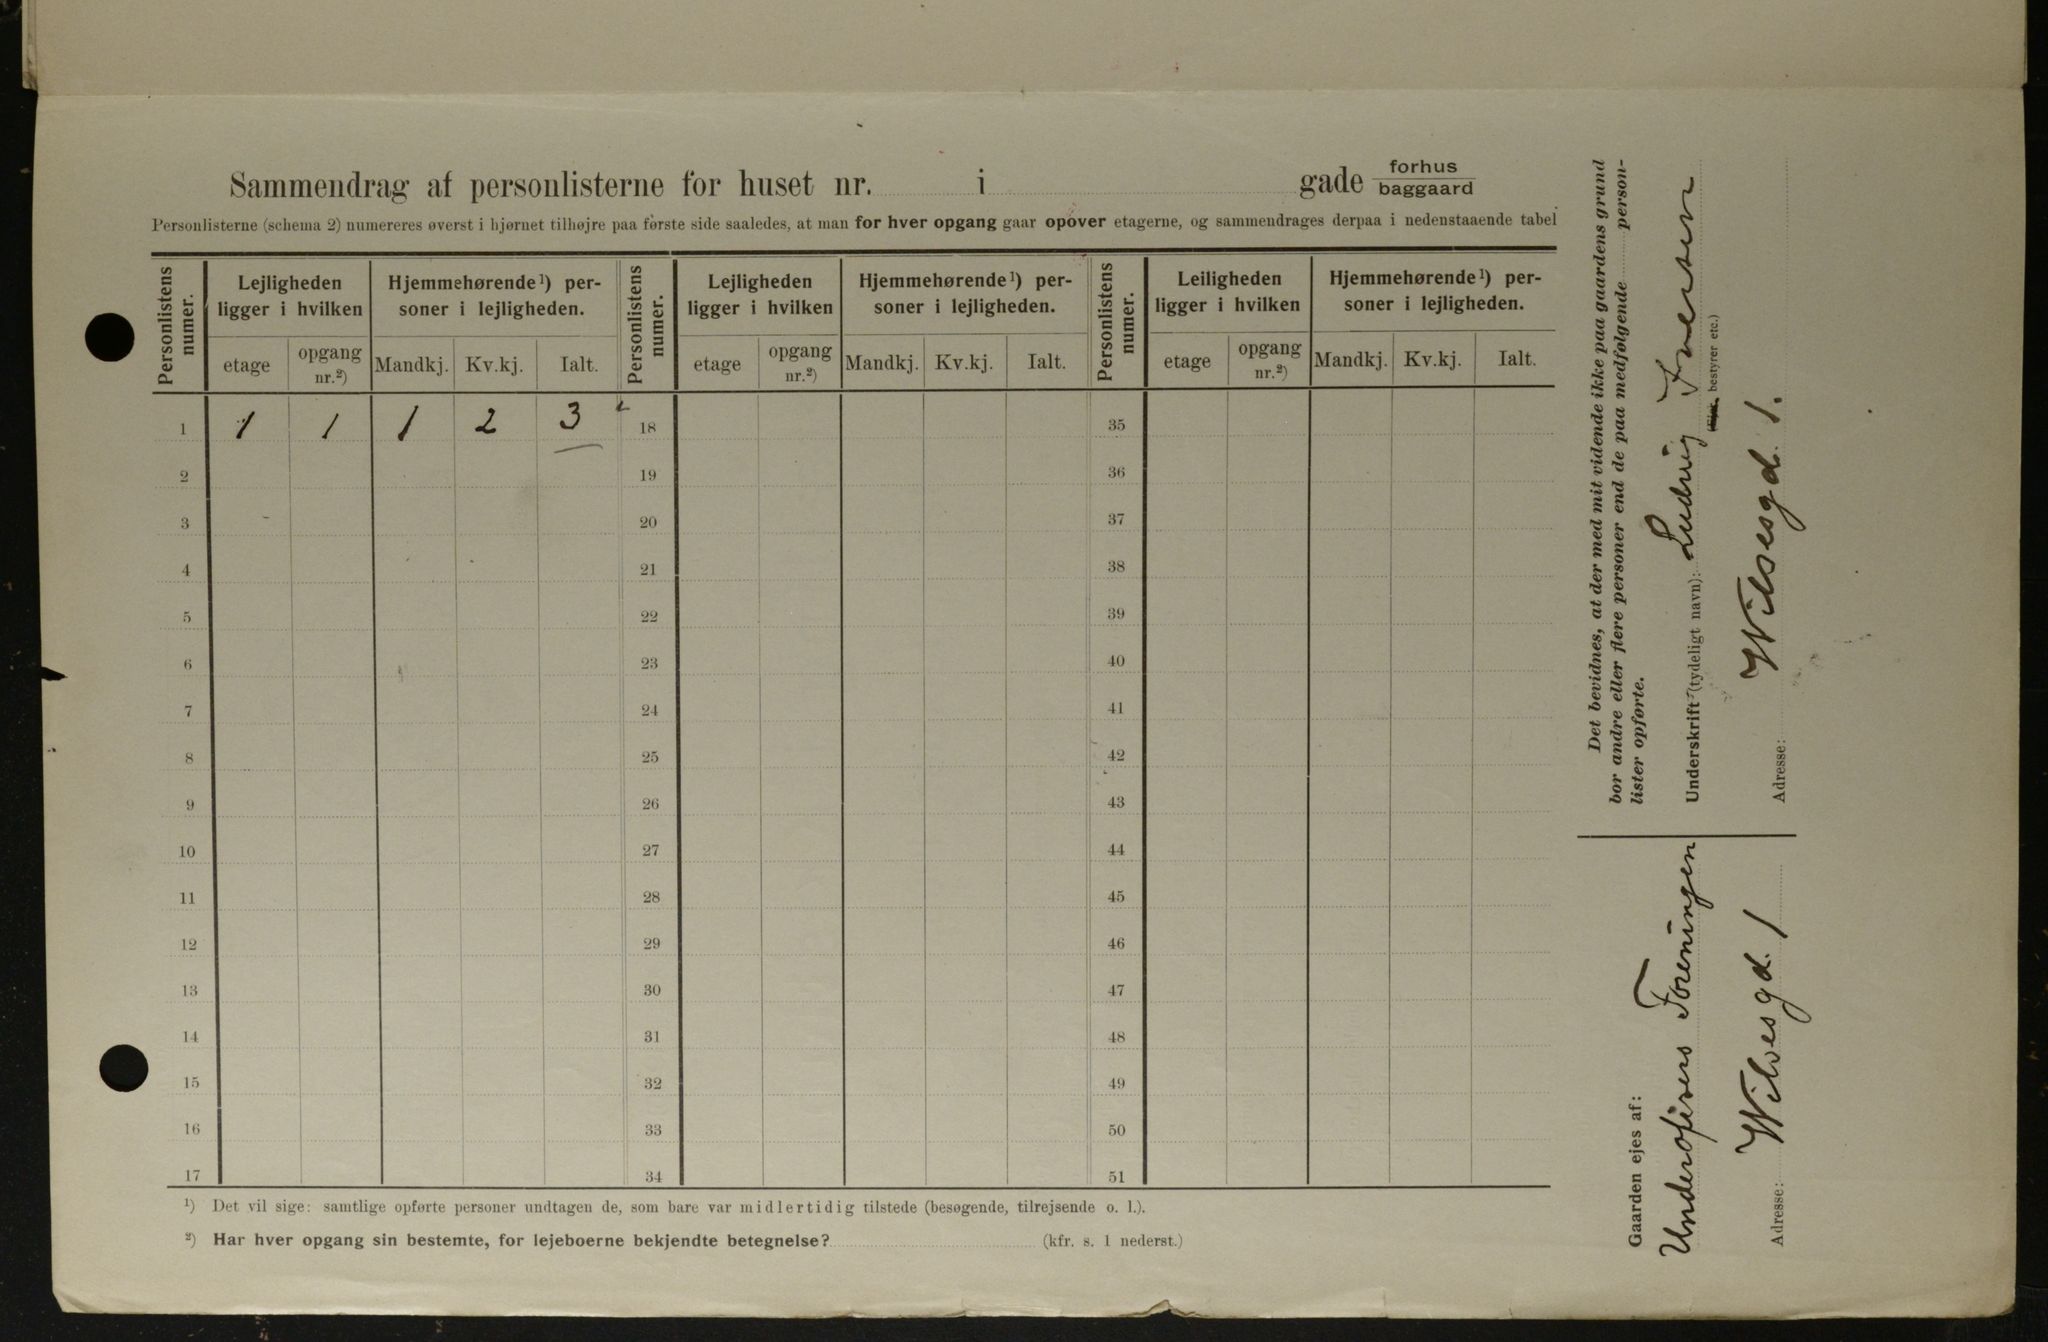 Sammendrag af personlisterne for huset nr. i gade forhus
baggaard
Personlisterne (schema 2) numereres øverst i hjørnet tilhøjre paa første side saaledes, at man for hver opgang gaar opover etagerne, og sammendrages derpaa i nedenstaaende tabel
Personlistens numer.
Lejligheden ligger i hvilken
Hjemmehørende¹) personer i lejligheden.
Personlistens numer.
Lejligheden ligger i hvilken
Hjemmehørende¹) personer i lejligheden.
Personlistens numer.
Leiligheden ligger i hvilken
Hjemmehørende¹) personer i lejligheden.
etage opgang nr.²) Mandkj. Kv.kj. Ialt. etage opgang nr.²) Mandkj. Kv.kj. Ialt. etage opgang nr.²) Mandkj. Kv.kj. Ialt.
1 1 1 1 2 3 18 35
2 19 36
3 20 37
4 21 38
5 22 39
6 23 40
7 24 41
8 25 42
9 26 43
10 27 44
11 28 45
12 29 46
13 30 47
14 31 48
15 32 49
16 33 50
17 34 51
¹) Det vil sige: samtlige opførte personer undtagen de, som bare var midlertidig tilstede (besøgende, tilrejsende o. l.).
²) Har hver opgang sin bestemte, for lejeboerne bekjendte betegnelse? (kfr. s. 1 nederst.)
Det bevidnes, at der med mit vidende ikke paa gaardens grund
bor andre eller flere personer end de paa medfølgende person-
lister opførte.
Underskrift (tydeligt navn): Ludvig
(Eier, bestyrer etc.)
Adresse: Wilsesgd. 1.
Gaarden ejes af:
Underofisers Foreningen
Adresse: Wilsesgd. 1